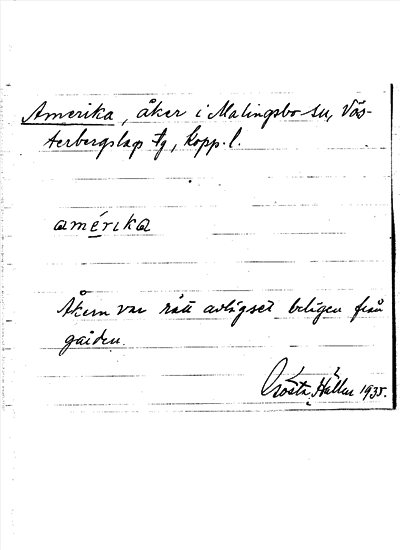 Amerika, åker i Malingsbo sn, Väs-
terbergslags tg, Kopp. l.
amérika
Åkern var rätt avlägset belägen från
gården.
Gösta Hallén 1935.